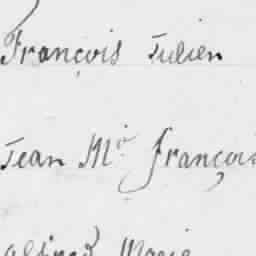 François Julien
Jean M.ie françois
alfred Marie